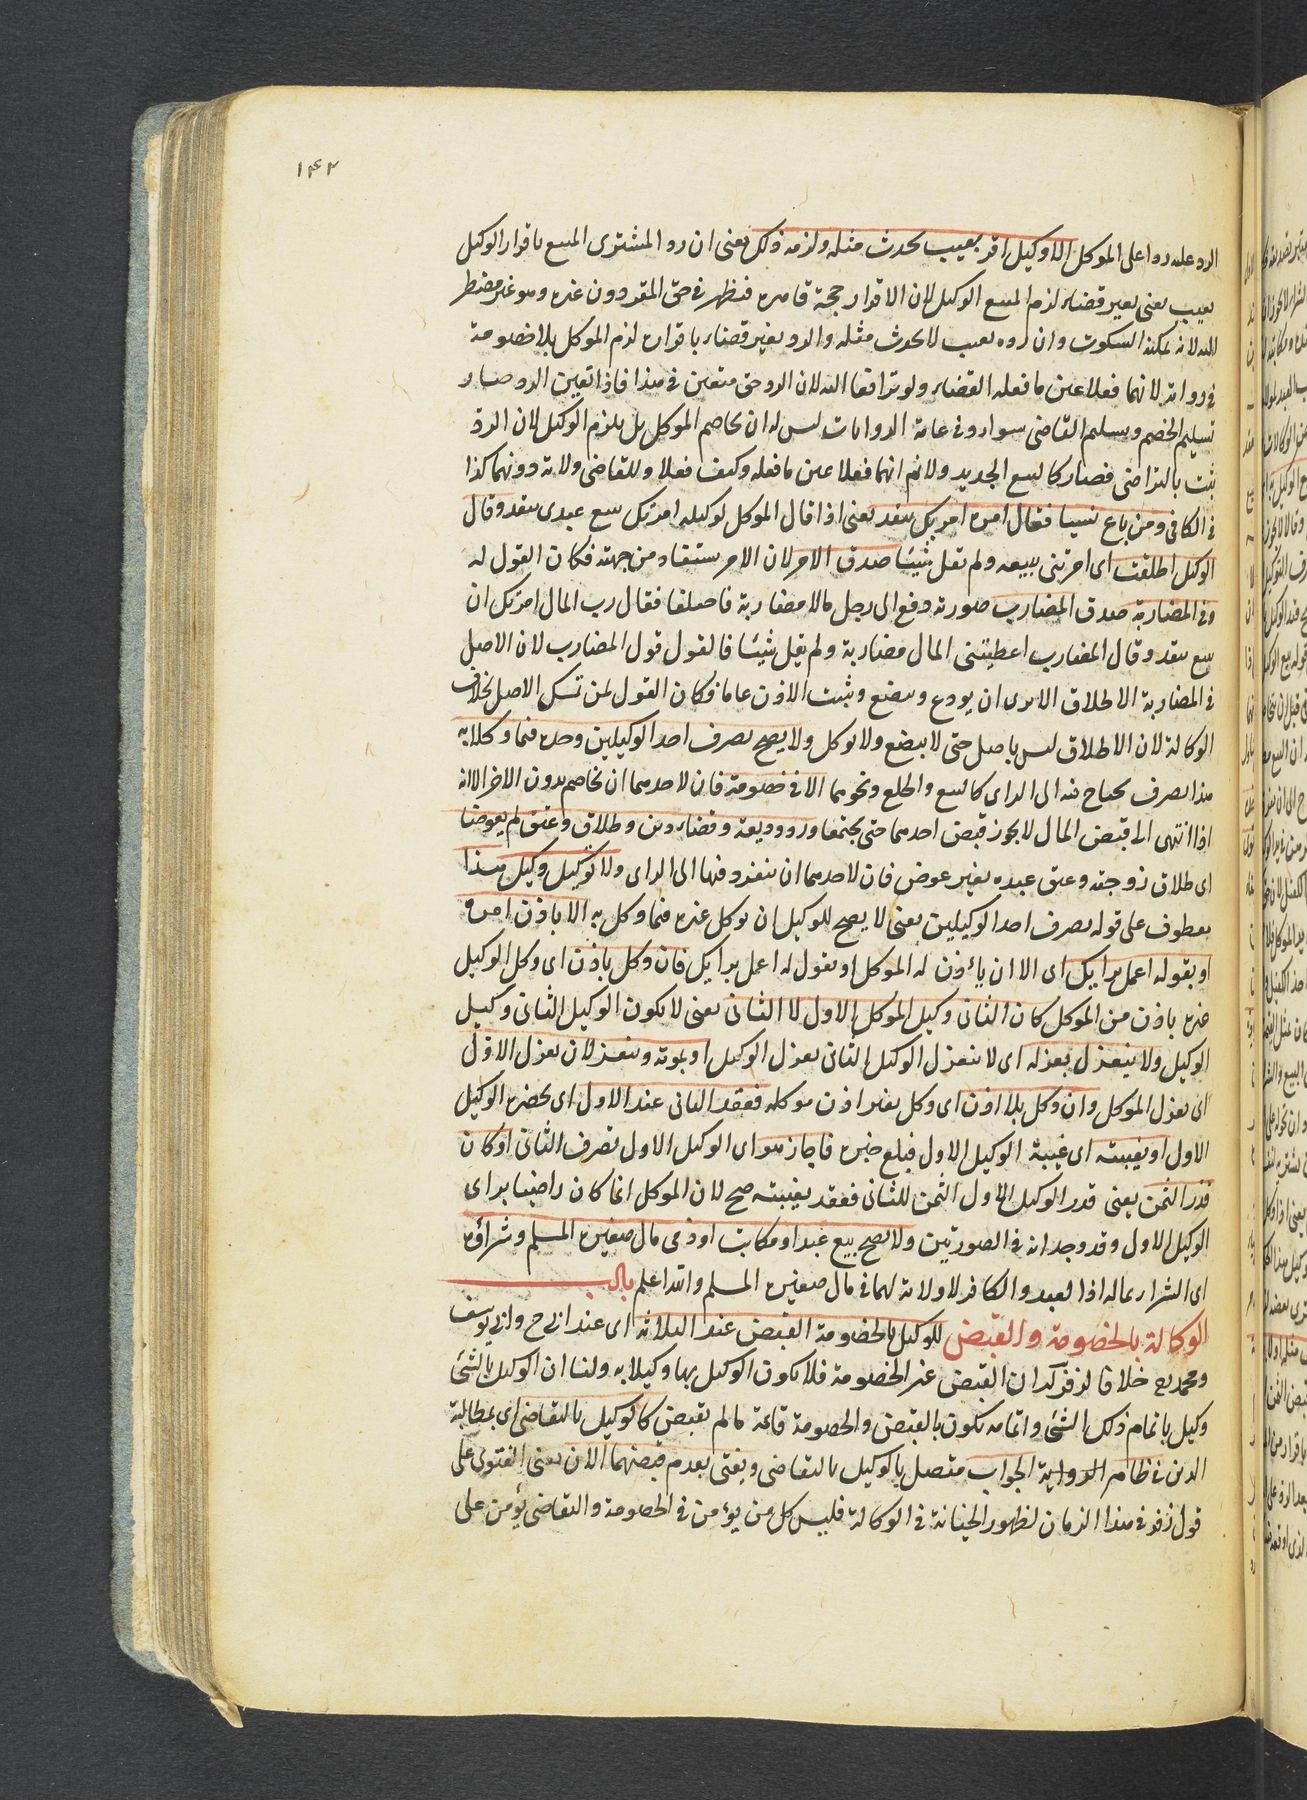 ١٤٢
الرد عليه ردا على الموكل الا وكيل اقر بعيب يحدث مثله ولزمه ذلك يعنى ان رد المشترى المبيع باقرار الوكيل
بعيب يعنى بغير قضاء لزم المبيع الوكيل لان الاقرار حجة قاصرة فيظهر فى حق المقر دون غيره وهو غير مضطر
اليه لانه يمكنه السكوت وان رده بعيب لا يحدث مثله والرد بغير قضاء باقراره لزم الموكل بلا خصومة
فى رواية لانهما فعلا عين ما فعله القضاء ولو ترافعا اليه لان الرد حق متعين فى هذا فاذا تعين الرد صار
تسليم الخصم وتسليم القاضى سواء وفى عامة الروايات ليس له ان يخاصم الموكل بل يلزم الوكيل لان الرد
ثبت بالتراضى فصار كالبيع الجديد ولا نم انهما فعلا عين ما فعله وكيف فعلا وللقاضى ولاية دونهما كذا
فى الكافى ومن باع نسيا فقال امره امرتك بنقد يعنى اذا قال الموكل لوكيله امرتك ببيع عبدى بنقد وقال
الوكيل اطلقت اى امرتنى ببيعه ولم تقل شيئا صدق الامر لان الامر مستفاد من جهته فكان القول له
وفى المضاربة صدق المضارب صورته دفع الى رجل مالا مضاربة فاختلفا فقال رب المال امرتك ان
تبيع بنقد وقال المضارب اعطيتنى المال مضاربة ولم تقل شيئا فالقول قول المضارب لان الاصل
فى المضاربة الاطلاق الا يرى ان يودع ويبضع وثبت الاذن عاما فكان القول لمن تمسك الاصل بخلاف
الوكالة لان الاطلاق ليس باصل حتى لا يبضع ولا يوكل ولا يصح تصرف احد الوكيلين وحده فيما وكلا به
هذا تصرف يحتاج فيه الى الراى كالبيع والخلع ونحوهما الا فى خصومة فان لاحدهما ان يخاصم بدون الاخر الا انه
اذا انتهى الى قبض المال لا يجوز قبض احدهما حتى يجتمعا ورد وديعة وقضاء دين وطلاق وعتق لم يعوضا
اى طلاق زوجته وعتق عبده بغير عوض فان لاحدهما ان ينفرد فيها الى الراى ولا توكيل وكيل هذا
معطوف على قوله تصرف احد الوكيلين يعنى لا يصح للوكيل ان يوكل غيره فيما وكل به الا باذن امره
او بقوله اعمل برايك اى الا ان يأذن له الموكل او يقول له اعمل برايك فان وكل باذن اى وكل الوكيل
غيره باذن من الموكل كان الثانى وكيل الموكل الاول لا الثانى يعنى لا يكون الوكيل الثانى وكيل
الوكيل ولا ينعزل بعزله اى لا ينعزل الوكيل الثانى بعزل الوكيل او بموته وينعزلان بعزل الاول
اى بعزل الموكل وان وكل بلا اذن اى وكل بغير اذن موكله فعقد الثانى عند الاول اى بحضرة الوكيل
الاول او بغيبته اى غيبة الوكيل الاول فبلغ خبره فاجاز هو اى الوكيل الاول تصرف الثانى او كان
قدر الثمن يعنى قدر الوكيل الاول الثمن للثانى فعقد بغيبته صح لان الموكل انما كان راضيا براى
الوكيل الاول وقد وجد انه فى الصورتين ولا يصح بيع عبد او مكاتب او ذمى مال صغيره المسلم وشراؤه
اى الشراء بماله اذ العبد والكافر لا ولاية لهما فى مال صغيره المسلم والله اعلم باب
الوكالة بالخصومة والقبض للوكيل بالخصومة القبض عند الثلاثة اى عند ابى ح وابى يوسف
ومحمد رح خلافا لزفر كه ان القبض غير الخصومة فلا يكون الوكيل بها وكيلا به ولنا ان الوكيل بالشئ
وكيل باتمام ذلك الشئ واتمامه يكون بالقبض والخصومة قائمة ما لم يقبض كالوكيل بالتقاضى اى بمطالبة
الدين فى ظاهر الرواية الجواب متصل بالوكيل بالتقاضى ويفتى بعدم قبضهما الان يعنى الفتوى على
قول زفر فى هذا الزمان لظهور الخيانة فى الوكالة فليس كل من يؤمن فى الخصومة والتقاضى يؤمن على